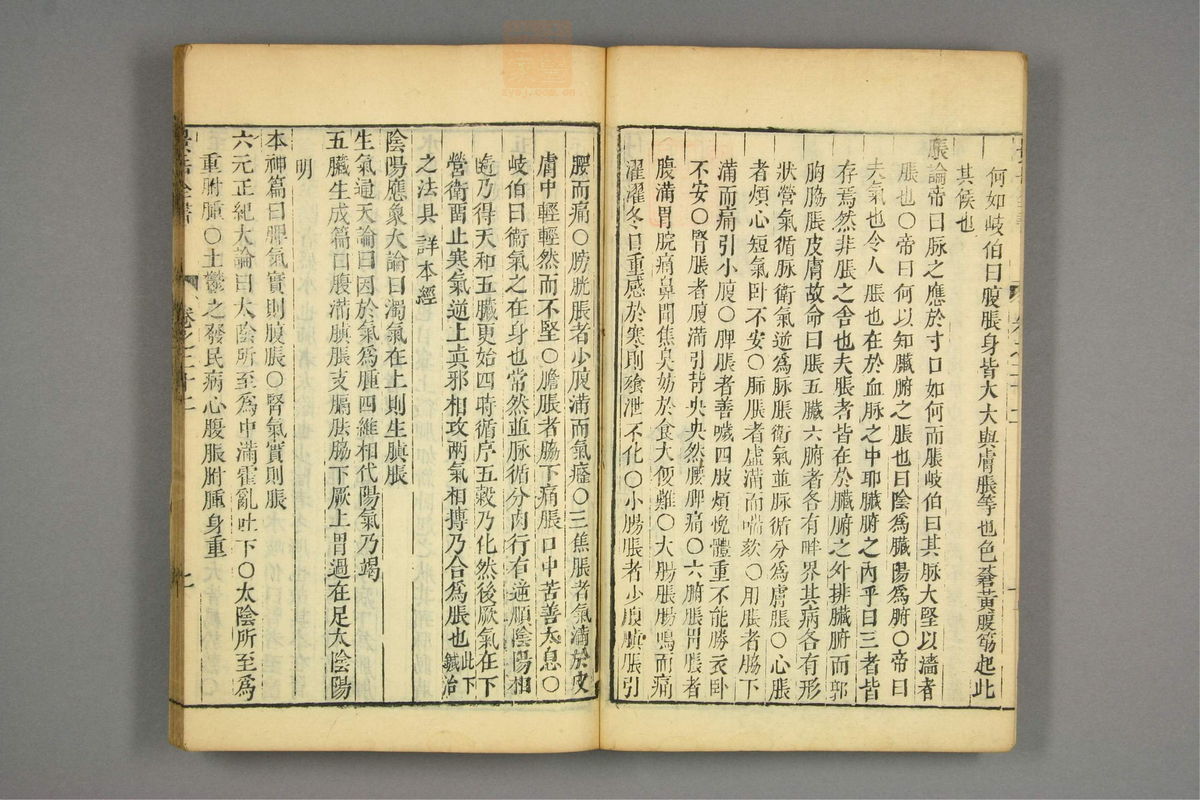 何如岐伯曰腹脹身皆大大與膚脹等也色蒼黃腹筋起此
其候也
脹論帝曰脉之應於寸口如何而脹岐伯曰其脉大堅以濇者
脹也〇帝曰何以知臟腑之脹也曰陰爲臟陽爲腑〇帝曰
夫氣也令人 脹也在於血脉之中耶臟腑之內乎曰三者皆
存焉然非脹之舍也夫脹者皆在於臟腑之外排臟腑而郭
胸脇脹皮膚故命曰脹五臟六腑者各有畔界其病各有形
狀營氣循脉衛氣逆爲脉脹衛氣並脉循分爲膚脹〇心脹
者煩心短氣卧不安〇肺脹者虛滿而喘欬〇肝脹者脇下
滿而痛引小腹〇脾脹者善噦四肢煩悗體重不能勝衣卧
不安〇腎脹者腹滿引背央央然腰髀痛〇六腑脹胃脹者
腹滿胃脘痛鼻聞焦臭妨於食大便難〇大腸脹腸鳴而痛
濯濯冬日重感於寒則飱泄不化〇小腸脹者少腹䐜脹引
腰而痛〇膀胱脹者少腹滿而氣癃〇三焦脹者氣滿於皮
膚中輕輕然而不堅〇膽脹者脇下痛脹口中苦善太息〇
岐伯曰衛氣之在身也常然並脉循分肉行有逆順陰陽相
隨乃得天和五臟更始四時循序五穀乃化然後厥氣在下
營衛留止寒氣逆上眞邪相攻兩氣相摶乃合爲脹也此下鍼治
之法具詳本經
陰陽應象大論曰濁氣在上則生䐜脹
生氣通天論曰因於氣爲腫四維相代陽氣乃竭
五臟生成篇曰腹滿䐜脹支膈胠脇下厥上冒過在足太陰陽
明
本神篇曰脾氣實則腹脹〇腎氣實則脹
六元正紀大論曰太陰所至爲中滿霍亂吐下〇太陰所至爲
重胕腫〇土鬱之發民病心腹脹胕腫身重
景岳全書 卷之二十二 七